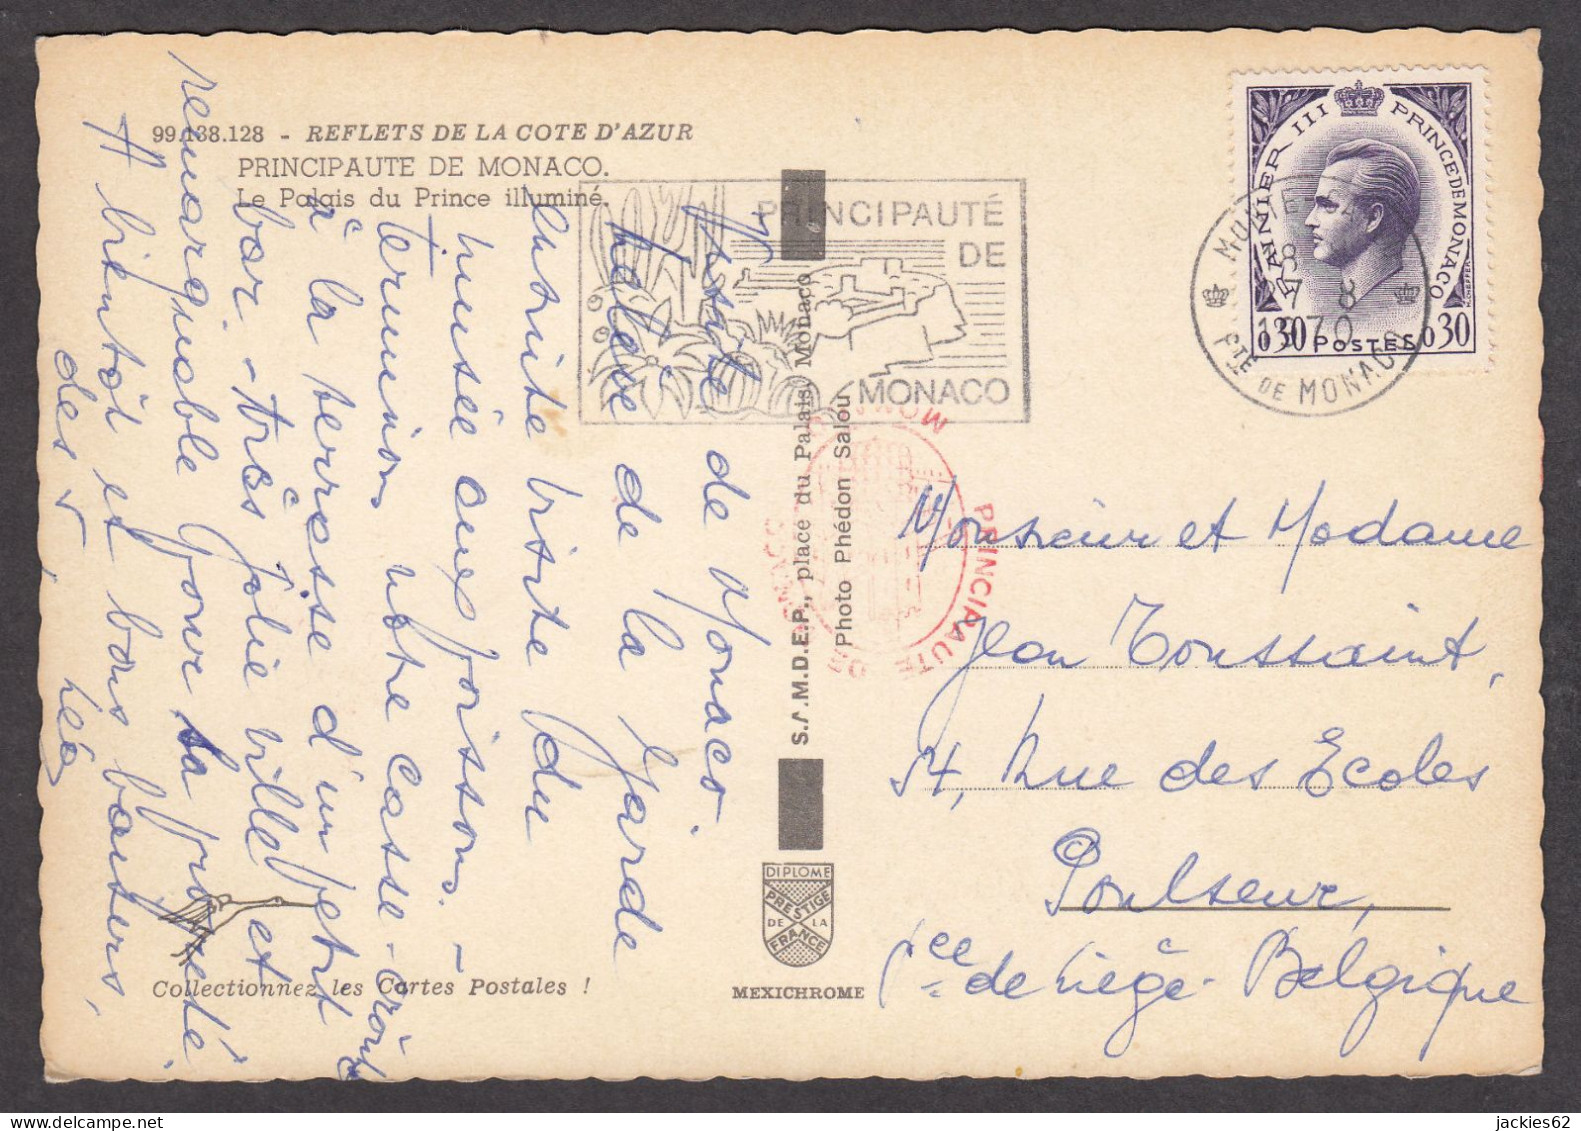 99.138.128 - REFLETS DE LA COTE D'AZUR
PRINCIPAUTE DE MONACO.
Le Palais du Prince illuminé.
Visite de Monaco
relève de la garde
ensuite visite du
musée own poissons. -
Terminons notre casse-croûte
à la terrasse d'un petit
bar. - très jolie ville et
remarquable pour sa propreté.
A bientôt et bons baisers,
des v, Léa
PRINCIPAUTÉ
DE
MONACO
S.A.M.D.E.P., place du Palais, Monaco
Photo Phédon Salou
PRINCIPAUTE DE MONACO
DIPLOME
PRESTIGE
DE LA
FRANCE
MEXICHROME
Collectionnez les Cartes Postales !
RAINIER III PRINCE DE MONACO
0,30 POSTES 0,30
MONTE
8
1970
PTE DE MONACO
Monsieur et Madame
Jean Toussaint,
54, Rue des Ecoles
Poulseur,
Pce de Liège - Belgique
jackies62